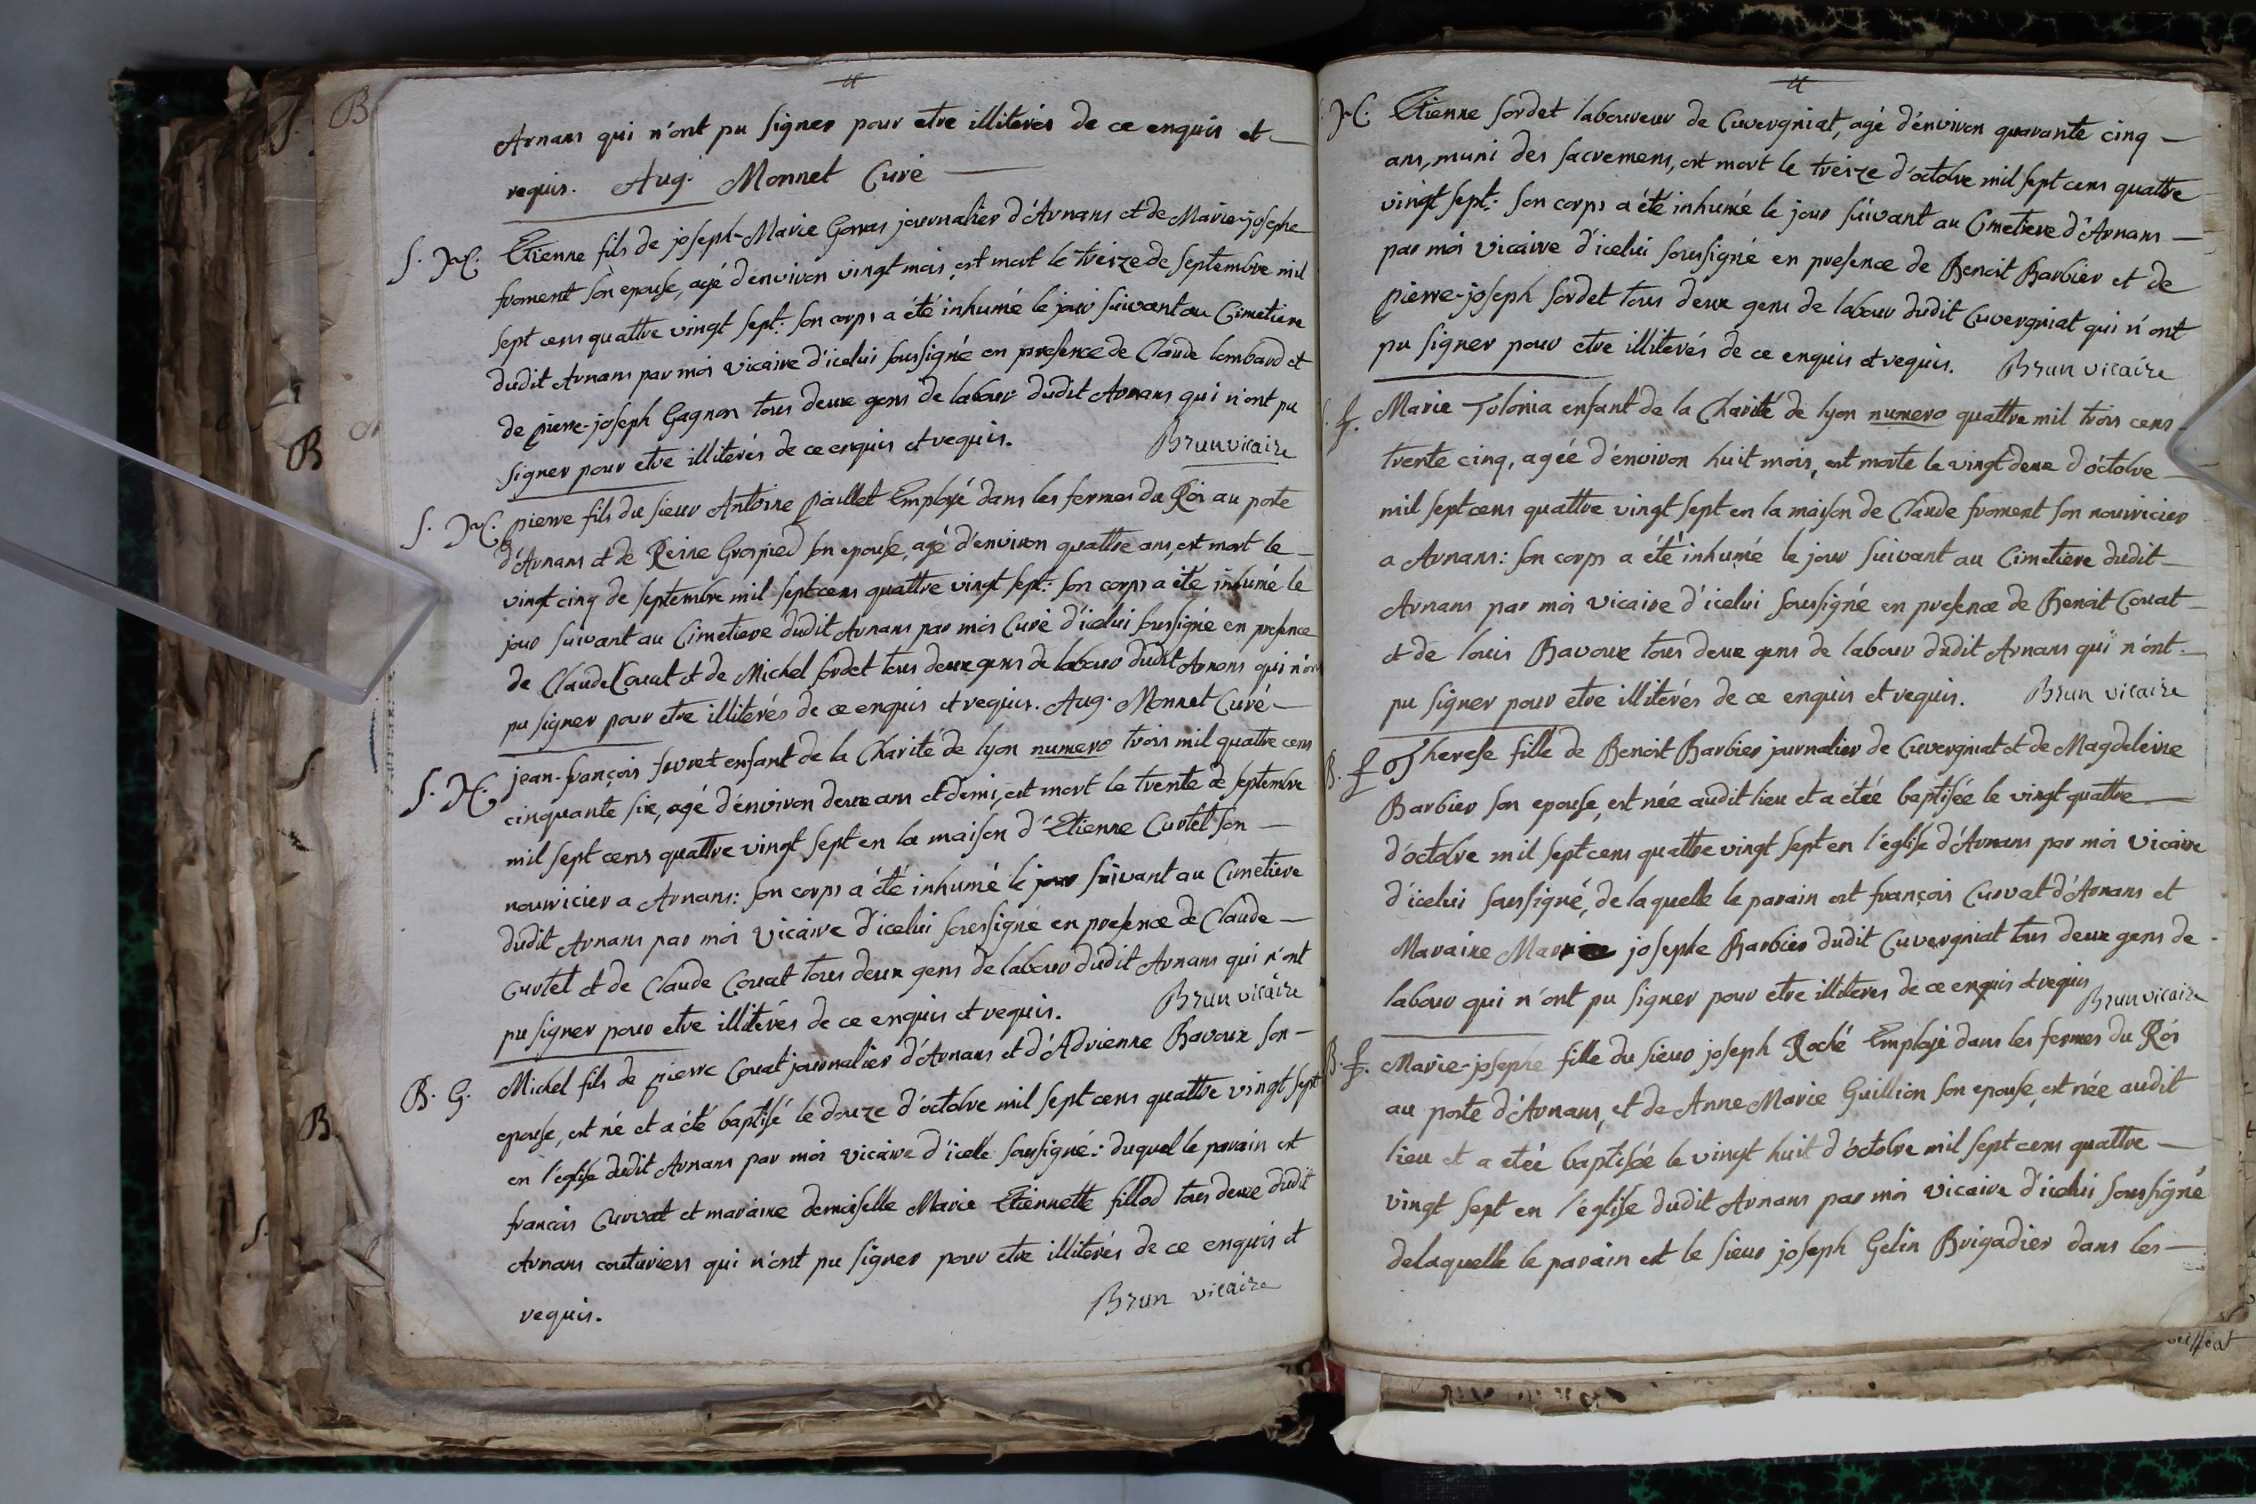 Arnans qui n'ont pu signer pour etre illiterés de ce enquis et
requis. Aug. Monnet Curé
S. M. Etienne fils de joseph-Marie journalier d'Arnans et de Marie-josephe
froment son epouse, agé d'environ vingt mois, est mort le treize de septembre mil
sept cens quattre vingt sept: son corps a été inhumé le jour suivant au Cimetiere
dudit Arnans par moi vicaire d'icelui soussigné en presence de Claude lombard et
de pierre-joseph Gagnon tous deux gens de labour dudit Arnans qui n'ont pu
signer pour etre illiterés de ce enquis et requis. Brun vicaire
S. M. pierre fils du sieur Antoine paillet Employé dans les fermes du Roi au poste
d'Arnans et de Reine Grospied son epouse, agé d'environ quattre ans, est mort le
vingt cinq de septembre mil sept cens quattre vingt sept: son corps a été inhumé le
jour suivant au Cimetiere dudit Arnans par moi Curé d'icelui soussigné en presence
de Claude Couat et de Michel sordet tous deux gens de labour dudit Arnans qui n'ont
pu signer pour etre illiterés de ce enquis et requis. Aug. Monnet Curé
S. M. jean-françois enfant de la Charité de lyon numero trois mil quattre cens
cinquante six, agé d'environ deux ans et demi, est mort le trente de septembre
mil sept cens quattre vingt sept en la maison d'Etienne Curtet son
nourricier a Arnans: son corps a été inhumé le jour suivant au Cimetiere
dudit Arnans par moi vicaire d'icelui soussigné en presence de Claude
Curtet et de Claude Couat tous deux gens de labour dudit Arnans qui n'ont
pu signer pour etre illiterés de ce enquis et requis. Brun vicaire
B. G. Michel fils de pierre Couat journalier d'Arnans et d'Adrienne Bavoux son
epouse, est né et a été baptisé le douze d'octobre mil sept cens quattre vingt sept
en l'eglise dudit Arnans par moi vicaire d'icelle soussigné: duquel le parain est
francois Curvat et maraine demoiselle Marie Etiennette fillod tous deux dudit
Arnans couturiers qui n'ont pu signer pour etre illiterés de ce enquis et
requis. Brun vicaire
M. Etienne sordet laboureur de Cuvergniat, agé d'environ quarante cinq
ans, muni des sacremens, est mort le treize d'octobre mil sept cens quattre
vingt sept: son corps a été inhumé le jour suivant au Cimetiere d'Arnans
par moi vicaire d'icelui soussigné en presence de Benoit Barbier et de
pierre-joseph sordet tous deux gens de labour dudit Cuvergniat qui n'ont
pu signer pour etre illiterés de ce enquis et requis. Brun vicaire
f. Marie Tolonia enfant de la Charité de lyon numero quattre mil trois cens
trente cinq, agée d'environ huit mois, est morte le vingt deux d'octobre
mil sept cens quattre vingt sept en la maison de Claude froment son nourricier
a Arnans: son corps a été inhumé le jour suivant au Cimetiere dudit
Arnans par moi vicaire d'icelui soussigné en presence de Benoit Couat
et de louis Bavoux tous deux gens de labour dudit Arnans qui n'ont
pu signer pour etre illiterés de ce enquis et requis. Brun vicaire
B. f. Therese fille de Benoit Barbier journalier de Cuvergniat et de Magdeleine
Barbier son epouse, est née audit lieu et a etée baptisée le vingt quattre
d'octobre mil sept cens quattre vingt sept en l'église d'Arnans par moi vicaire
d'icelui soussigné, de laquelle le parain est françois Curvat d'Arnans et
Maraine Marie josephe Barbier dudit Cuvergniat tous deux gens de
labour qui n'ont pu signer pour etre illiteres de ce enquis et requis Brun vicaire
B. f. Marie-josephe fille du sieur joseph Roché Employé dans les fermes du Roi
au poste d'Arnans, et de Anne Marie Guillion son epouse, est née audit
lieu et a etée baptisée le vingt huit d'octobre mil sept cens quattre
vingt sept en l'église dudit Arnans par moi vicaire d'icelui soussigné
delaquelle le parain est le sieur joseph Gelin Brigadier dans les